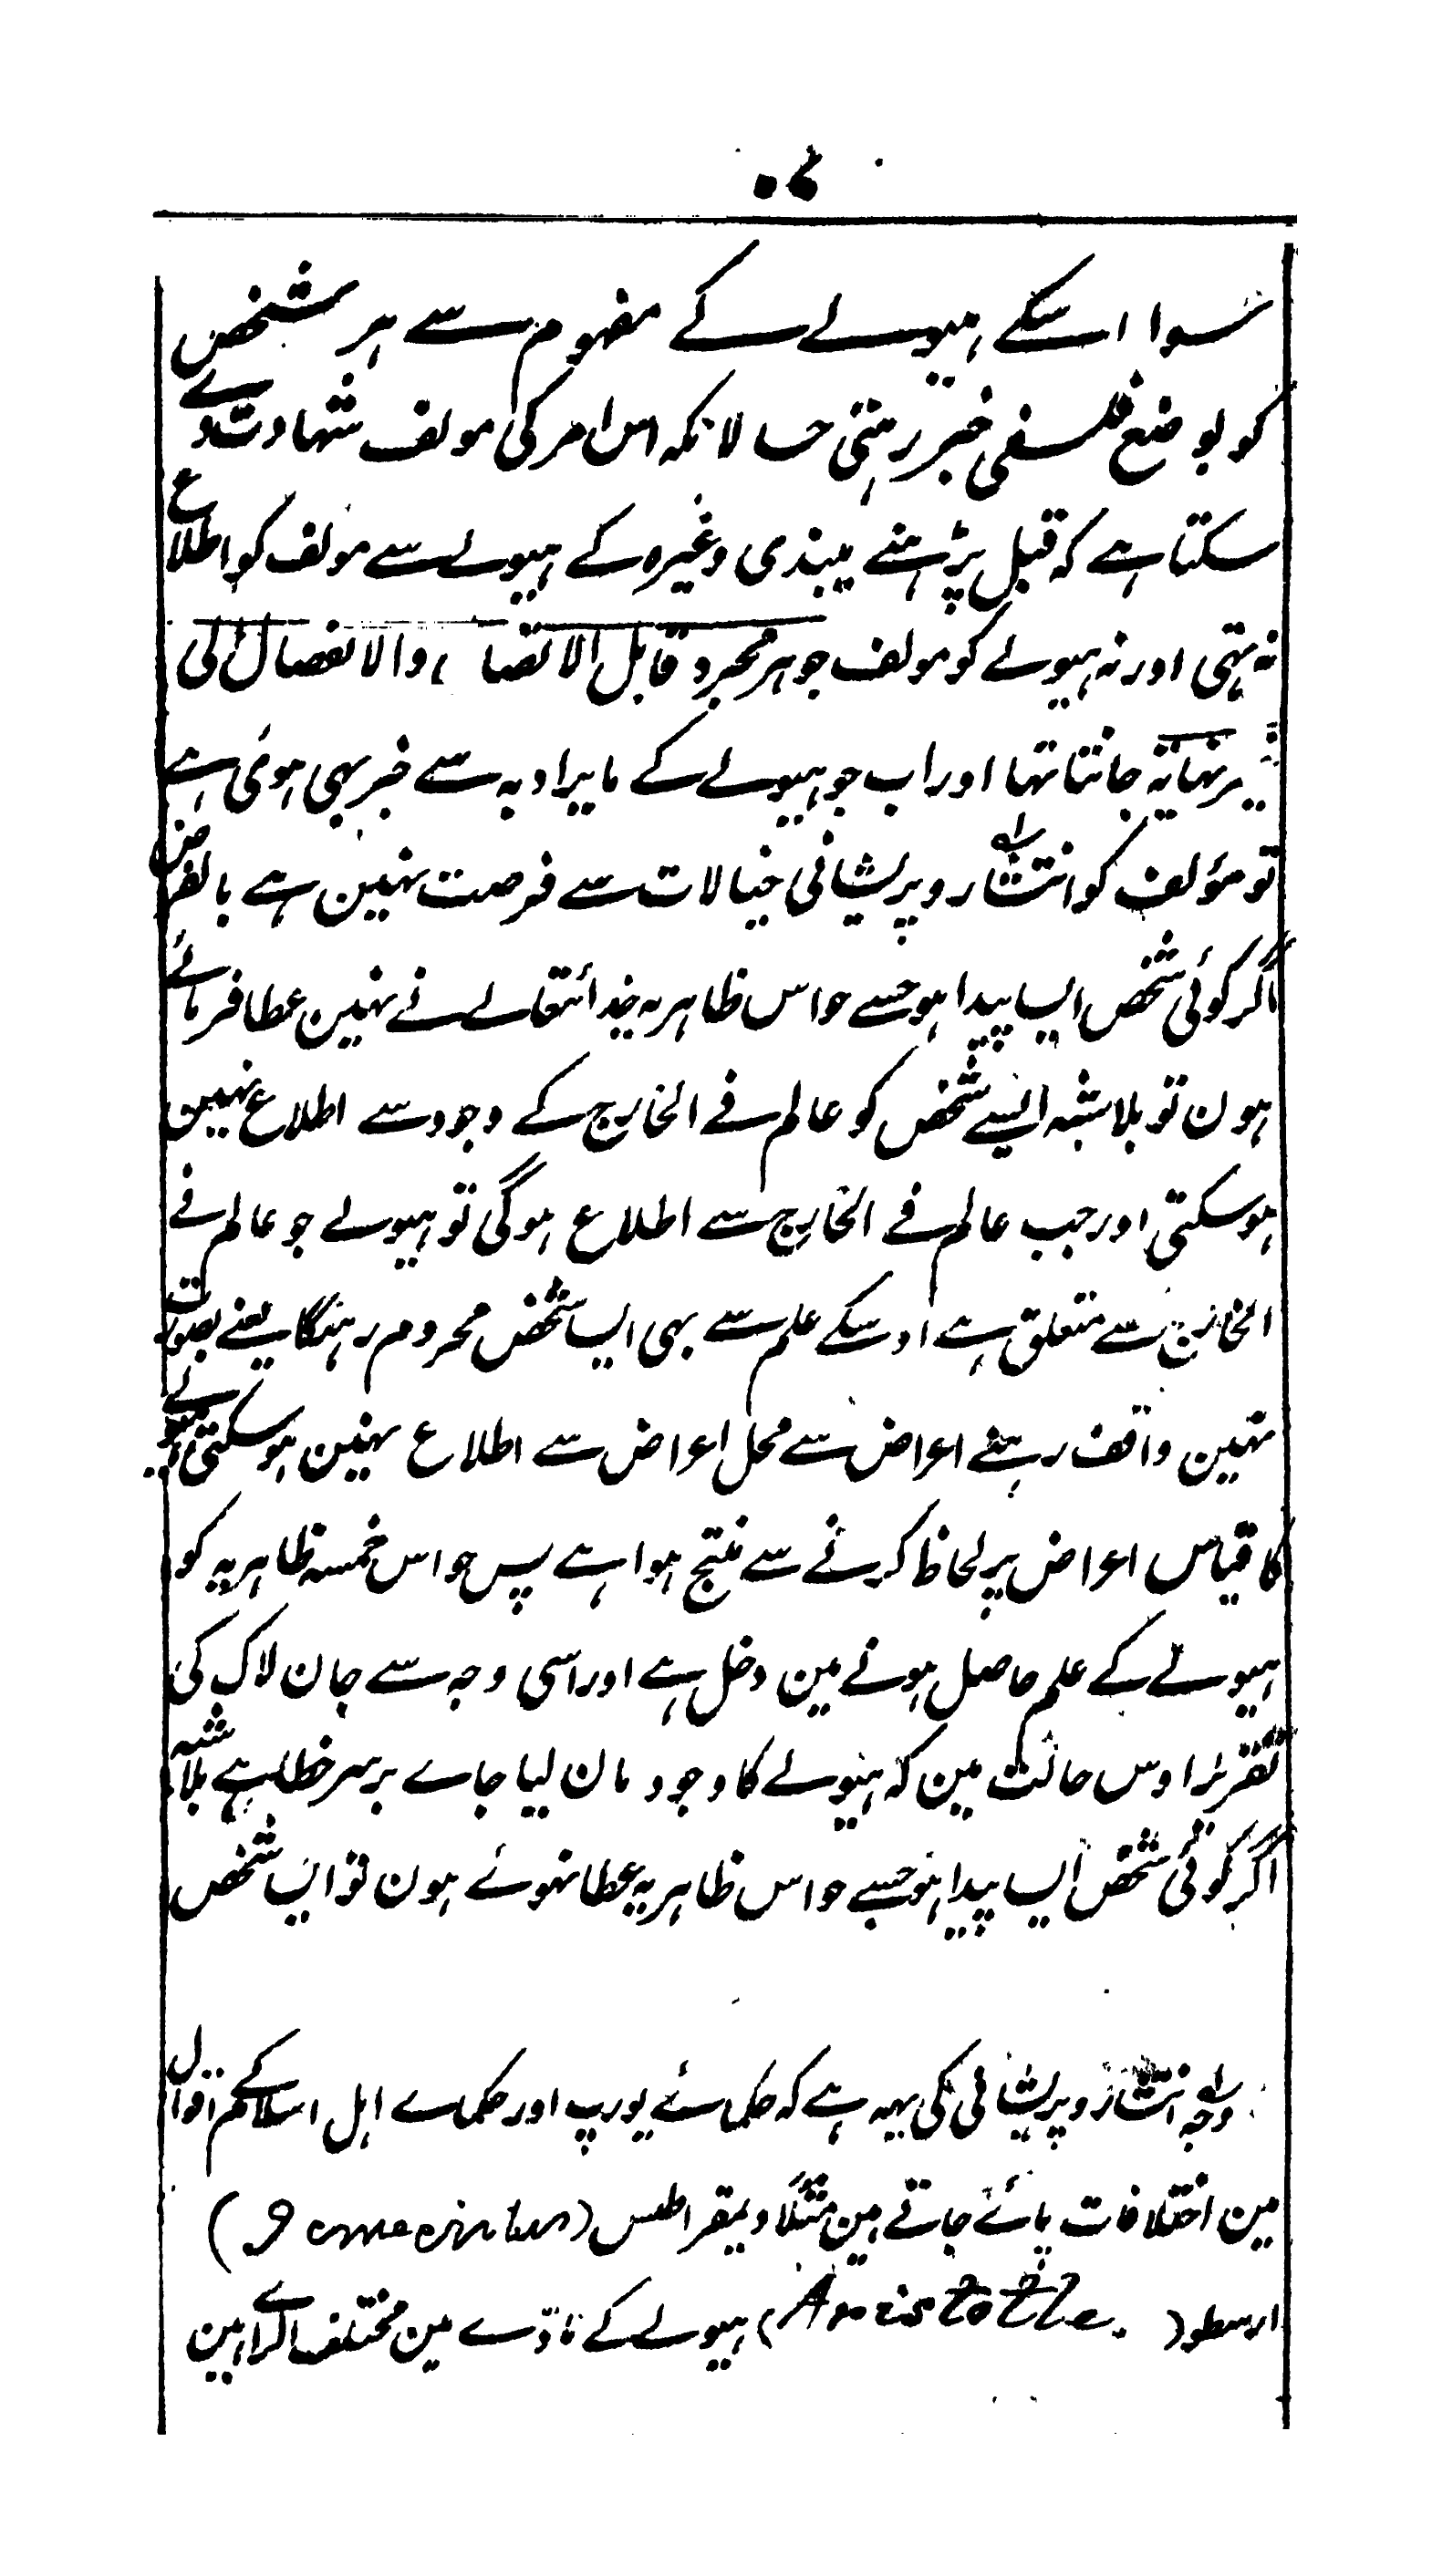 سوا اسکے ہیولے کے مفہوم سے ہر شخص
کو بوضع فلسفی خبر رہتی حالانکہ اس امر کی مولف شہادت دے
سکتا ہے کہ قبل پڑہنے میبذی وغیرہ کے ہیولے سے مولف کو اطلاع
نہ تہی اور نہ ہیولے کو مولف جوہر مجرد قابل الاتصال والانفصال الی
غیر نہایۃ جانتا تہا اور اب جو ہیولے کے مایراد بہ سے خبر بہی ہوئی ہے
تو مؤلف کو انتشار و پریشانی خیالات سے فرصت نہین ہے بالفرض
اگر کوئی شخص ایسا پیدا ہو جسے حواس ظاہریہ خدائتعالے نے نہین عطا فرمائے
ہون تو بلاشبہ ایسے شخص کو عالم فے الخارج کے وجود سے اطلاع نہین
ہوسکتی اور جب عالم فے الخارج سے اطلاع ہوگی تو ہیولے جو عالم فے
الخارج سے متعلق ہے اوسکے علم سے بہی ایسا شخص محروم رہیگا یعنے بصورت
نہین واقف رہنے اعراض سے محل اعراض سے اطلاع نہین ہوسکتی ہیولے
کا قیاس اعراض پر لحاظ کرنے سے منتج ہوا ہے پس حواس خمسہ ظاہریہ کو
ہیولے کے علم حاصل ہونے مین دخل ہے اور اسی وجہ سے جان لاک کی
تقریر اوس حالت مین کہ ہیولے کا وجود مان لیا جاے برسر خطا ہے بلاشبہ
اگر کوئی شخص ایسا پیدا ہو جسے حواس ظاہریہ عطا نہوئے ہون تو ایسا شخص
وجہ انتشار و پریشانی کی یہہ ہے کہ حکمائے یورپ اور حکماے اہل اسلام کے اقوال
مین اختلافات پائے جاتے ہین مثلاً دیمقراطیس (Democritus)
ارسطو (Aristotle.) ہیولے کے مادّے مین مختلف الراے ہین